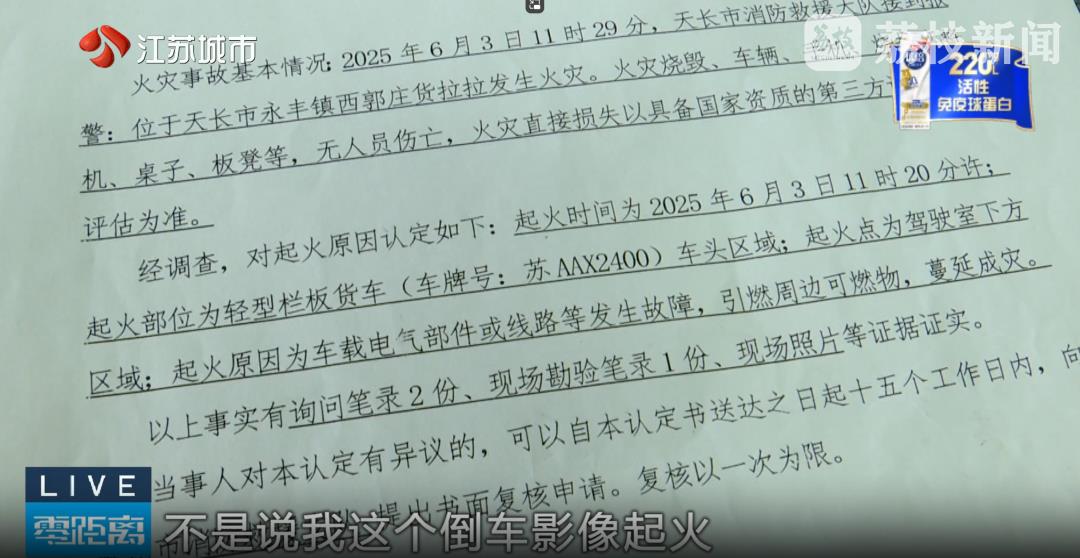 江苏城市
荔枝新闻
220亿
活性
免疫球蛋白
火灾事故基本情况：2025年6月3日11时29分，天长市消防救援大队接到报
警：位于天长市永丰镇西郭庄货拉拉发生火灾。火灾烧毁、车辆、
机、桌子、板凳等，无人员伤亡，火灾直接损失以具备国家资质的第三方
评估为准。
经调查，对起火原因认定如下：起火时间为2025年6月3日11时20分许；
起火部位为轻型栏板货车（车牌号：苏AAX2400）车头区域；起火点为驾驶室下方
区域；起火原因为车载电气部件或线路等发生故障，引燃周边可燃物，蔓延成灾。
以上事实有询问笔录2份、现场勘验笔录1份、现场照片等证据证实。
当事人对本认定有异议的，可以自本认定书送达之日起十五个工作日内，向
提出书面复核申请。复核以一次为限。
市消
LIVE
零距离
不是说我这个倒车影像起火